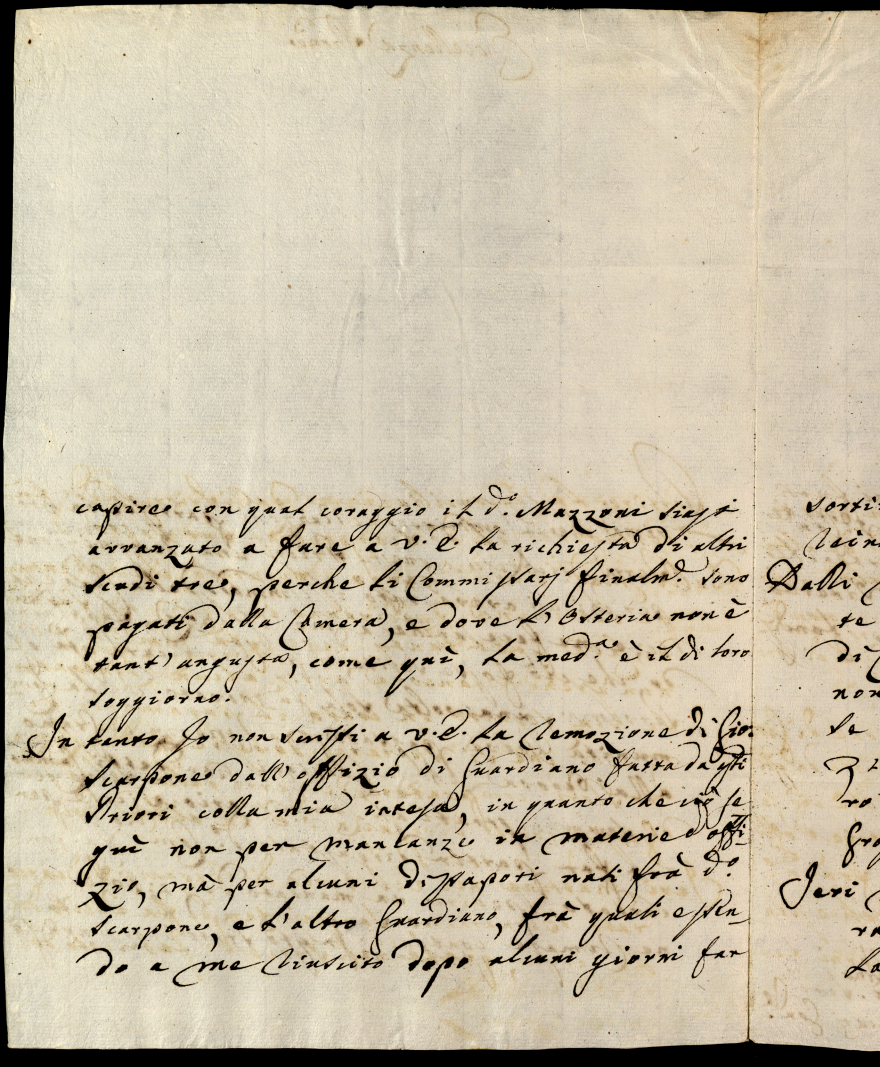 capire con qual coraggio il d.º Mazzoni siasi
avvanzato a fare a V.E. la richiesta di altri
scudi tre, perche li Commissarj finalm.e sono
pagati dalla Camera, e dove l'Osteria non è
tant'angusta, come quì, la med.ma è il di loro
soggiorno.
In tanto Io non scrissi a V.E. la remozione di Gio:
Scarpone dall'offizio di Guardiano fatta da q̃sti
Priori colla mia intesa, in quanto che ciò se
guì non per mancanze in materie d'offi-
zio, mà per alcuni dispapori nati frà d.º
Scarpone, e l'altro Guardiano, frà quali essen-
do a me riuscito dopo alcuni giorni far
sorti
Dalli
te
di
non
se
ro
Jeri
ra